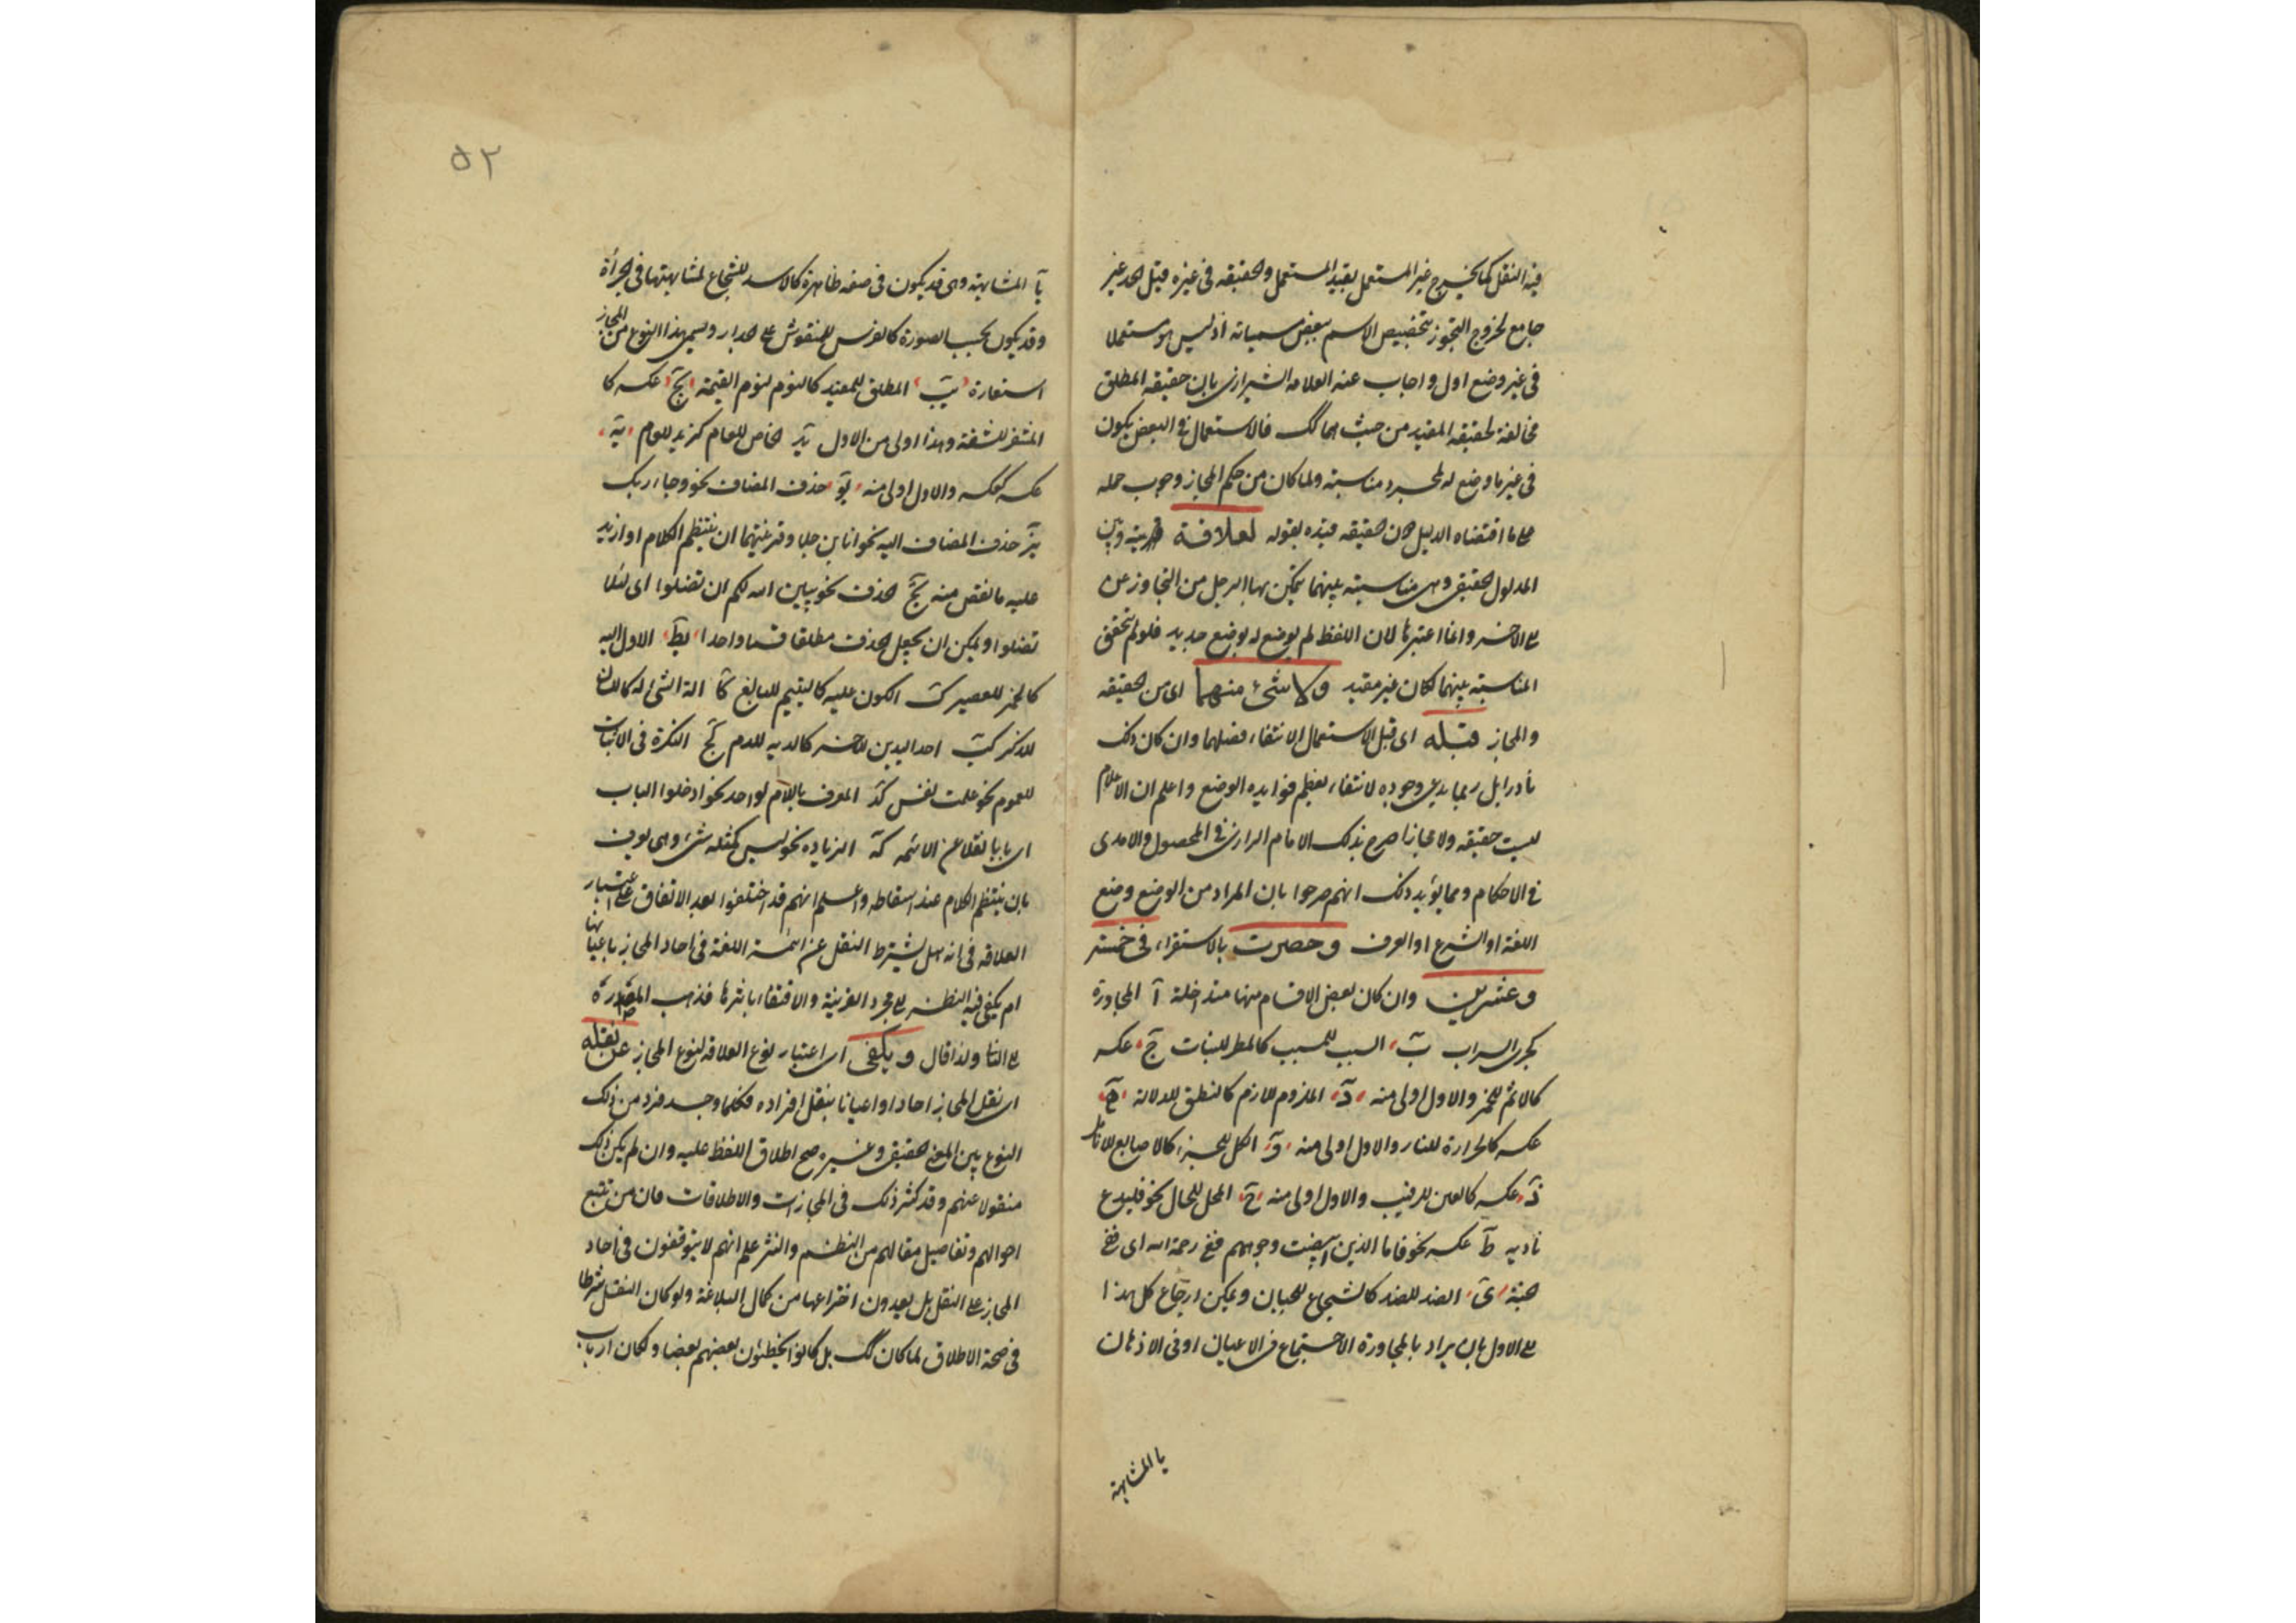 فيه النقل كما يخرج غير المستعمل بقيد المستعمل والحقيقه في غيره قيل الحد غير
جامع لخروج التجوز بتخصيص الاسم ببعض مسمياته اذ ليس هو مستعملا
في غير وضع اول واجاب عنه العلامه الشيرازى بان حقيقه المطلق
مخالفة لحقيقه المقيد من حيث هما كك فالاستعمال في البعض يكون
في غير ما وضع له لمجرد مناسبته ولما كان من حكم المجاز وجوب حمله
على ما اقتضاه الدليل دون حقيقه قيده بقوله لعلاقة بينه وبين
المدلول الحقيقى وهى مناسبته بينهما يتمكن بها الرجل من التجاوز عن
على الاخر وانما اعتبرها لان اللفظ لم يوضع له بوضع جديد فلو لم يتحقق
المناسبته بينهما لكان غير مقيد ولا شئ منهما اى من الحقيقه
والمجاز قبله اى قبل الاستعمال لانتفاء فصلهما وان كان ذلك
نادرا بل ربما يدعى وجوده لانتفاء بعظم فوايده الوضع واعلم ان الاعلام
ليست حقيقه ولا مجازا صرح بذلك الامام الرازى في المحصول والامدى
في الاحكام ومما يؤيد ذلك انهم صرحوا بان المراد من الوضع وضع
اللغة او الشرع او العرف وحصرت بالاستقراء في خمسة
وعشرين وان كان بعض الاقسام منها متداخلة آ المجاورة
كجرى السراب بَ السبب للمسبب كالمطر للنبات جَ عكسه
كالاثم للخمر والاول اولى منه دَ الملزوم للازم كالنطق للدلالة هَ
عكسه كالحرارة للنار والاول اولى منه وَ الكل للجزء كالاصابع للانامل
زَ عكسه كالعين للرقيب والاول اولى منه حَ المحل للحال نحو فليدع
ناديه طَ عكسه نحو فاما الذين ابيضت وجوههم ففى رحمة الله اى ففى
جنته ىَ الضد للضد كالشجاع للجبان ويمكن ارجاع كل هذا
على الاول بان يراد بالمجاورة الاجتماع في الاعيان او في الاذهان
يا المشابهة
٥٢
يآ المشابهة وهى قد يكون في صفه ظاهرة كالاسد للشجاع لمشابهتهما في الجرأة
وقد يكون بحسب الصورة كالفرس للمنقوش على الجدار ويسمى هذا النوع من المجاز
استعارة يبَ المطلق للمقيد كاليوم ليوم القيمة يجَ عكسه كا
المشفر للشفة وهذا اولى من الاول يدَ الخاص للعام كزيد للعام يهَ
عكسه كعكسه والاول اولى منه يوَ حذف المضاف نحو وجاء ربك
يزَ حذف المضاف اليه نحو انا ابن جلا وقرينتهما ان ينتظم الكلام او ازيد
عليه ما نقص منه يحَ الحذف نحو يبين الله لكم ان تضلوا اى لئلا
تضلوا ويمكن ان يجعل الحذف مطلقا قسما واحدا يطَ الاول اليه
كالخمر للعصير كَ الكون عليه كاليتيم للبالغ كآ الة الشئ له كاللسان
للذكر كبَ احد البدلين للاخر كالديه للدم كجَ النكرة في الاثبات
للعموم نحو علمت نفس كدَ المعرف باللام لواحد نحو ادخلوا الباب
اى بابا نقلا عن الائمه كهَ الزياده نحو ليس كمثله شئ وهى يعرف
بان ينتظم الكلام عند اسقاطه واعلم انهم قد اختلفوا بعد الاتفاق على اعتبار
العلاقه في انه هل يشترط النقل عن ائمة اللغة في احاد المجاز باعيانها
ام يكفى فيه النظر على مجرد القرينة والاقتفاء باثرها فذهب المص
على الثا ولذا قال ويكفى اى اعتبار نوع العلاقه لنوع المجاز عن نقله
اى نقل المجاز احادا واعيانا بنقل افراده فكلما وجد فرد من ذلك
النوع بين المعنى الحقيقى وغيره صح اطلاق اللفظ عليه وان لم يكن ذلك
منقولا عنهم وقد كثر ذلك في المجازات والاطلاقات فان من تتبع
احوالهم وتفاصيل مقالهم من النظم والنثر علم انهم لا يتوقفون في احاد
المجاز على النقل بل يعدون اختراعها من كمال البلاغة ولو كان النقل شرطا
في صحة الاطلاق لما كان كك بل كانوا يخطئون بعضهم بعضا ولكان ارباب